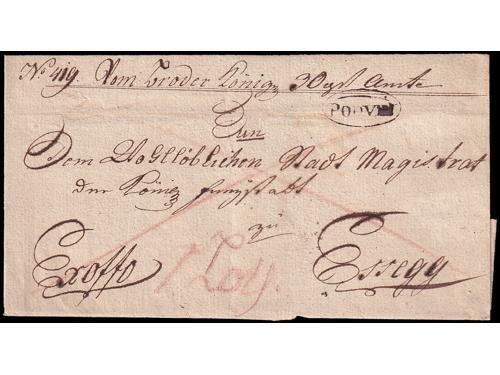 No. 419. Vom Broder König 30gst Amte
PODVIN
An
Dem Wohllöblichen Stadt Magistrat
der König Freystadt
zu
Exoffo Essegg
1 Loth